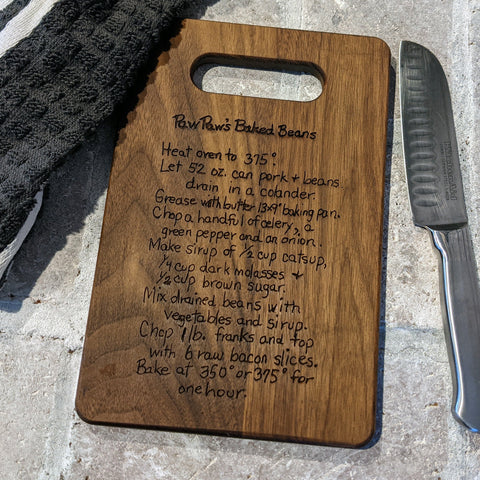 Paw Paw's Baked Beans
Heat oven to 375°.
Let 52 oz. can pork + beans
drain in a colander.
Grease with butter 13x9" baking pan.
Chop a handful of celery, a
green pepper and an onion.
Make sirup of 1/2 cup catsup,
1/4 cup dark molasses +
1/2 cup brown sugar.
Mix drained beans with
vegetables and sirup.
Chop 1 lb. franks and top
with 6 raw bacon slices.
Bake at 350° or 375° for
one hour.